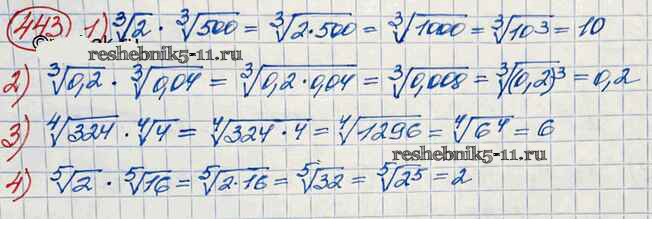 443 1) ∛2 · ∛500 = ∛(2·500) = ∛1000 = ∛(10³) = 10
reshebnik5-11.ru
2) ∛0,2 · ∛0,04 = ∛(0,2·0,04) = ∛0,008 = ∛((0,2)³) = 0,2
3) ∜324 · ∜4 = ∜(324·4) = ∜1296 = ∜(6⁴) = 6
reshebnik5-11.ru
4) ⁵√2 · ⁵√16 = ⁵√(2·16) = ⁵√32 = ⁵√(2⁵) = 2